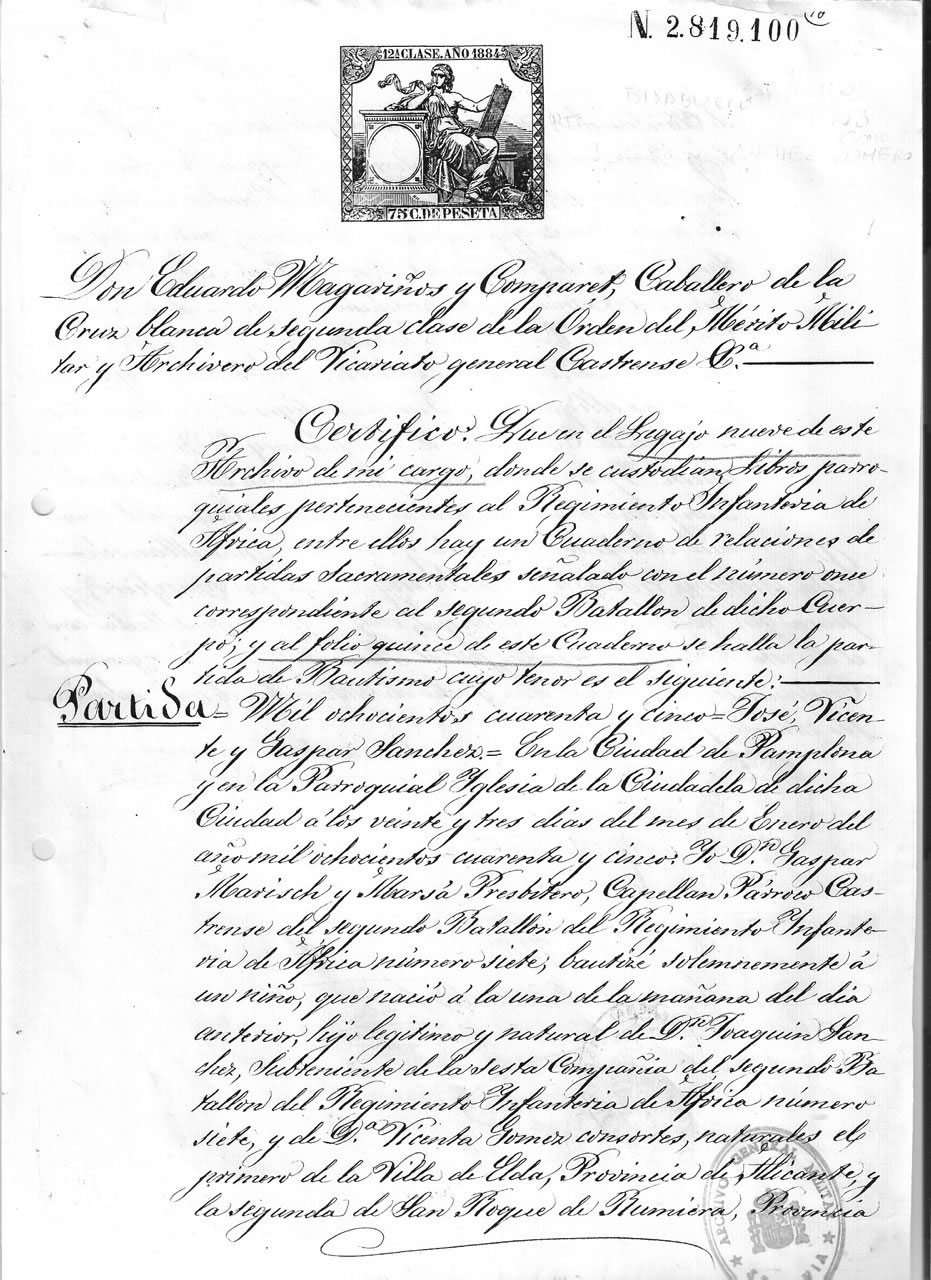 N. 2.819.100
12ª CLASE. AÑO 1884
75 C. DE PESETA
Don Eduardo Magariños y Comparet, Caballero de la
Cruz blanca de segunda clase de la Orden del Mérito Mili
tar y Archivero del Vicariato general Castrense &.ª
Certifico: Que en el Legajo nueve de este
Archivo de mi cargo, donde se custodian Libros parro-
quiales pertenecientes al Regimiento Infanteria de
Africa, entre ellos hay un Cuaderno de relaciones de
partidas Sacramentales señalado con el número once
correspondiente al segundo Batallon de dicho Cuer-
po; y al folio quince de este Cuaderno se halla la par-
tida de Bautismo cuyo tenor es el siguiente:
Partida = Mil ochocientos cuarenta y cinco = José, Vicen-
te y Gaspar Sanchez. = En la Ciudad de Pamplona
y en la Parroquial Yglesia de la Ciudadela de dicha
Ciudad á los veinte y tres dias del mes de Enero del
año mil ochocientos cuarenta y cinco: Yo D.ⁿ Gaspar
Marisch y Marsá Presbitero, Capellan Párroco Cas-
trense del segundo Batallón del Regimiento Infante-
ria de Africa número siete, bautizé solemnemente á
un niño, que nació á la una de la mañana del dia
anterior, hijo legitimo y natural de D.ⁿ Joaquin San-
chez, Subteniente de la sesta Compañia del segundo Ba
tallon del Regimiento Infanteria de Africa número
siete, y de D.ª Vicenta Gomez consortes, naturales el
primero de la Villa de Elda, Provincia de Alicante, y
la segunda de San Roque de Rumiera, Provincia
ARCHIVO GENERAL MILITAR